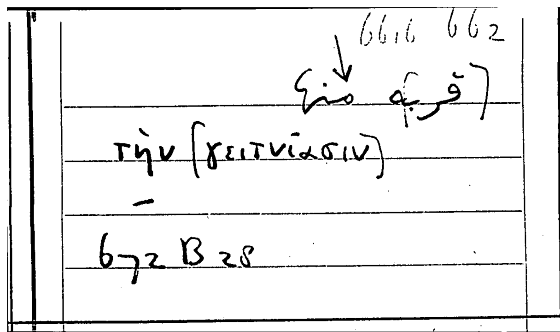 6616 662
[قربه]
τὴν [γειτνίασιν]
–
672 B 28